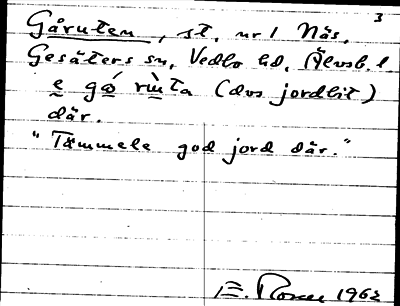 3
Gåruten, st. nr 1 Näs,
Gesäters sn, Vedbo hd, Älvsb. l
e gó ruta (dvs jordbit)
där.
"Tämmele god jord där."
E. 1962